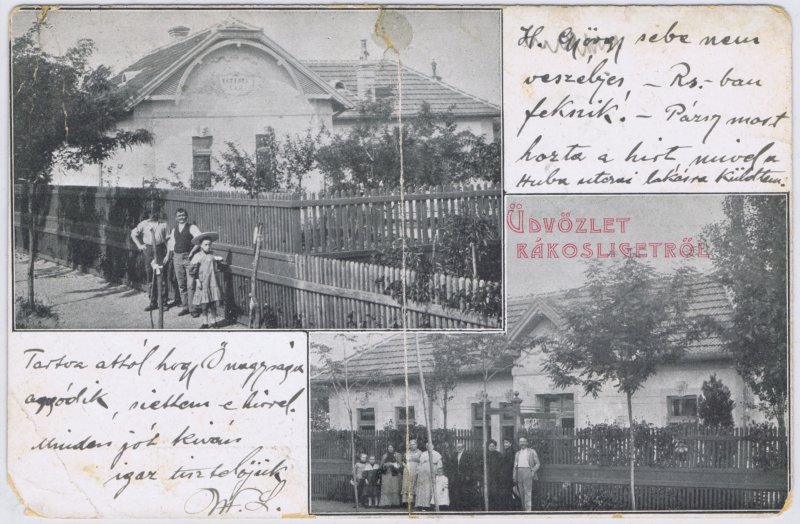 H. György sebe nem
veszélyes, – Rs.-ban
fekszik. – Párszy most
hozta a hirt, mivel a
Huba utczai lakásra küldtem.
ÜDVÖZLET
RÁKOSLIGETRŐL
Tartva attól hogy Ő nagysága
aggódik, siettem e hirrel.
Minden jót kiván
igaz tisztelőjük
M. L.